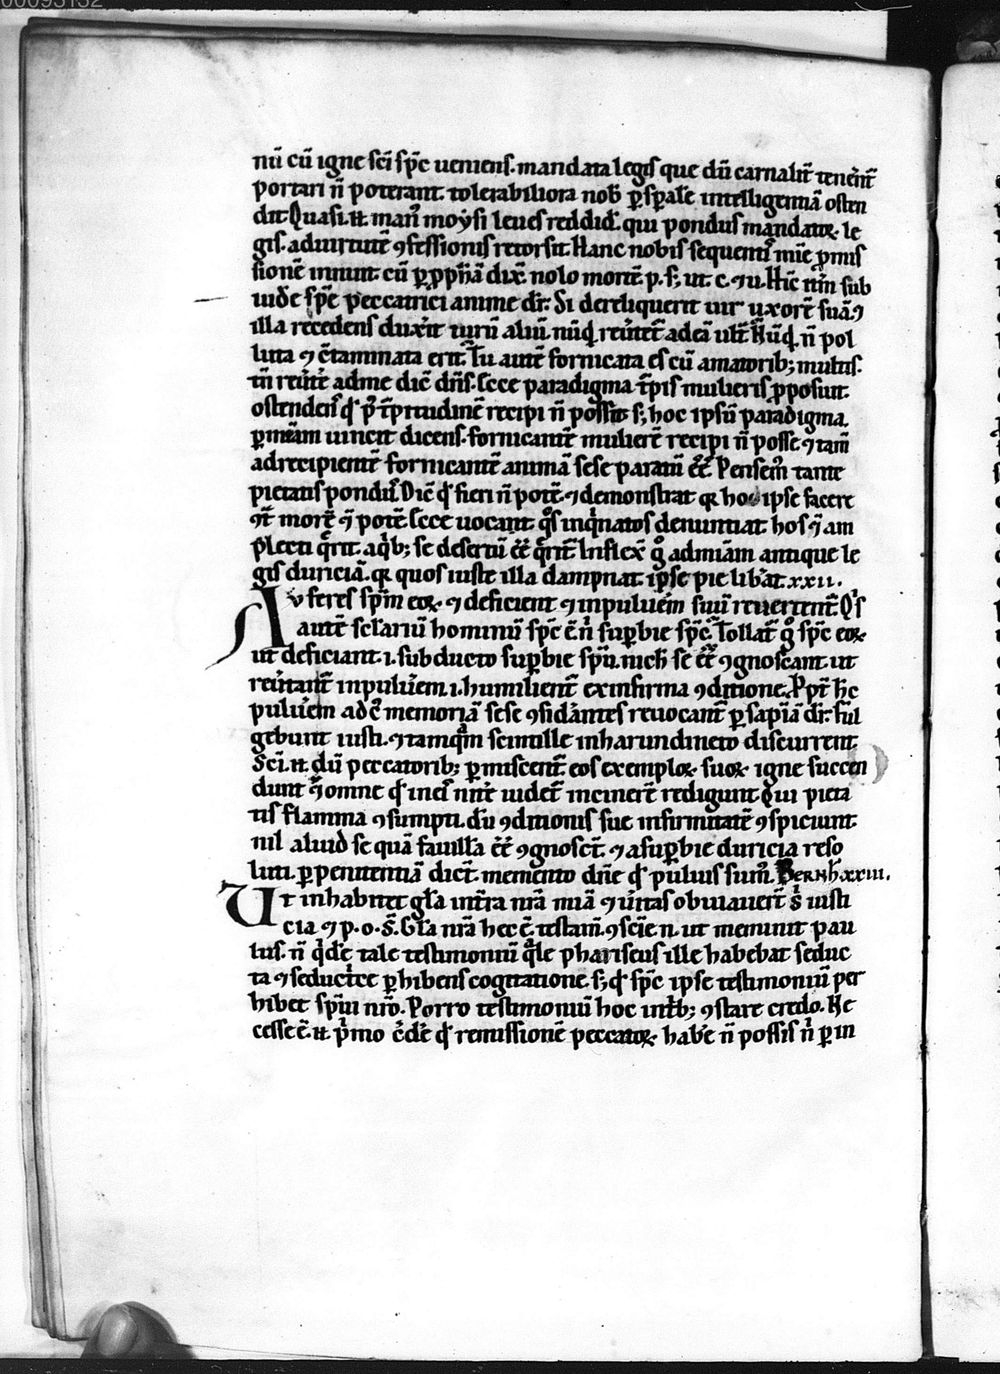 00095132
nū cū igne sci spc ueniens. mandata legis que dū carnalit tenent̄
portari n̄ poterant. tolerabiliora nob ꝑ spale intelligentiā osten
dit. Quasi .n. man moysi leues reddid. qui pondus mandatoꝝ le
gis. ad uirtutē ꝯfessionis retorsit. Hanc nobis sequenti mie ꝓmis
sionē innuit. cū ꝑ ꝓphā dix. nolo mortē p. s; ut. c. ⁊ u. Hīc in
iude spe peccatrici anime dr. Si dereliquerit uir uxorē suā. ⁊
illa recedens duxit uirū aliū. nūq reuertet ad eā ult. Nūq n̄ pol
luta ⁊ ꝯtaminata erit. Tu autē fornicata es cū amatorib; multis.
tn̄ reuerte ad me dic dn̄s. Ecce paradigma tpis mulieris ꝓposuit.
ostendens qd p tpitudinē recipi n̄ possit. s; hoc ipsū paradigma.
ꝑ miām uincit dicens. fornicantē mulierē recipi n̄ posse ⁊ tam̄
ad recipientē fornicantē animā sese paratū ee. Pensem tante
pietatis pondus. Dic qd fieri n̄ potē. ⁊ demonstrat qꝛ hoc ipse facere
ꝯt morē ⁊ potē. Ecce uocant qs inqnatos denuntiat. hos ⁊ am
plecti qrit. a qb; se desertū ee qrit. Inflex g ad miām antique le
gis duriciā. qꝛ quos iuste illa dampnat. ipse pie libat. xxii.
Aufferes spm eoꝝ. ⁊ deficient ⁊ in puluem suū reuertent. Qs
autē sclariū hominū spc en̄ supbie spc. Tollat g spc eoꝝ
ut deficiant .i. subducto supbie spū. nich se ee ꝯgnoscant. ut
reūtant in puluem .i. humilient ex infirma ꝯditione. Ppt hc
puluem ad memoriā sese ꝯsidantes reuocant ꝑ sapiā dr. ful
gebunt iusti. ⁊ tamqm scintille in harundineto discurrent.
Sci .n. dū peccatorib; ꝑmiscent. eos exemploꝝ suoꝝ igne succen
dunt. ⁊ omne qd in eis nitet uidet incinerē redigunt. Qui pieta
tis flamma ꝯsumpti. dū ꝯditionis sue infirmitatē ꝯspiciunt.
nil aliud se quā fauilla ee ꝯgnoscūt. ⁊ a supbie duricia reso
luti. ꝑ penitentiā dicūt. memento dn̄e qd puluis sum. Bernh. xxiii.
Ut inhabitet gla in tra nra mia ⁊ uitas obuiauert s iusti
cia ⁊ p. o. s. Gla nra hec ē testam ꝯscie n. ut meminit pau
lus. n̄ qdē tale testimoniū qle phariseus ille habebat seduc
ta ⁊ seductce ꝑhibens cogitatione. s; qd spc ipse testimoniū per
hibet spui nro. Porro testimoniū hoc in trib; ꝯstare credo. Ne
cesse ē .n. pmo ede qd remissionē peccatoꝝ habe n̄ possis n̄ ꝑ in